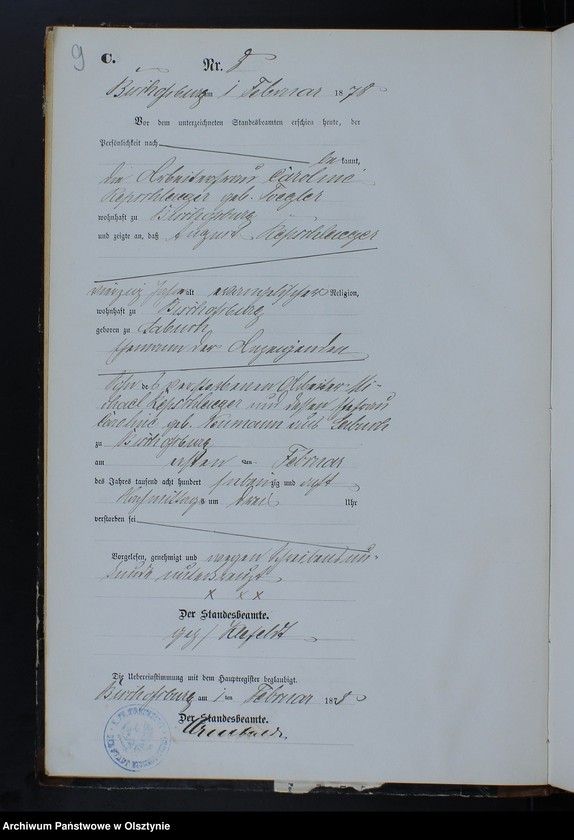 9 C.
Nr. 8
Bischofsburg am 1 Februar 1878
Vor dem unterzeichneten Standesbeamten erschien heute, der
Persönlichkeit nach
be kannt,
die Arbeiterfrau Caroline
geb.
wohnhaft zu Bischofsburg
und zeigte an, daß August
vierzig Jahr alt evangelischer Religion,
wohnhaft zu Bischofsburg
geboren zu
Ehemann der Anzeigenden
Sohn des verstorbenen Arbeiter Mi-
chael und dessen Ehefrau
Caroline geb. Neumann aus
zu Bischofsburg
am ersten ten Februar
des Jahres tausend acht hundert siebzig zig und acht
Nachmittags um drei Uhr
verstorben sei
Vorgelesen, genehmigt und wegen Schreibensun-
kunde unterkreuzt
x x x
Der Standesbeamte.
gez/
Die Uebereinstimmung mit dem Hauptregister beglaubigt.
Bischofsburg am 1 ten Februar 1878
Der Standesbeamte.
Archiwum Państwowe w Olsztynie